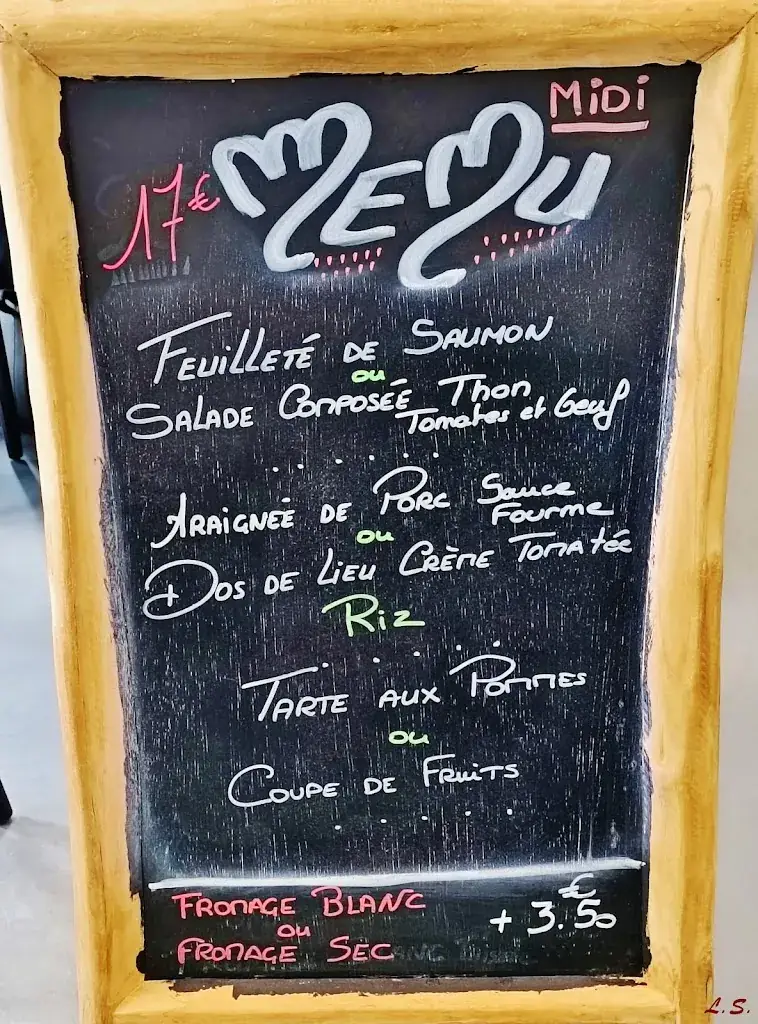 MiDi
17€ MENU
FEUILLETÉ DE SAUMON
ou
SALADE COMPOSÉE Thon
Tomates et Oeuf
ARAIGNEÉ DE PORC Sauce
Fourme
ou
+ DOS DE LIEU CRÈME TOMATÉE
RIZ
TARTE AUX POMMES
ou
COUPE DE FRUITS
FROMAGE BLANC
ou
FROMAGE SEC
+ 3.50 €
L.S.